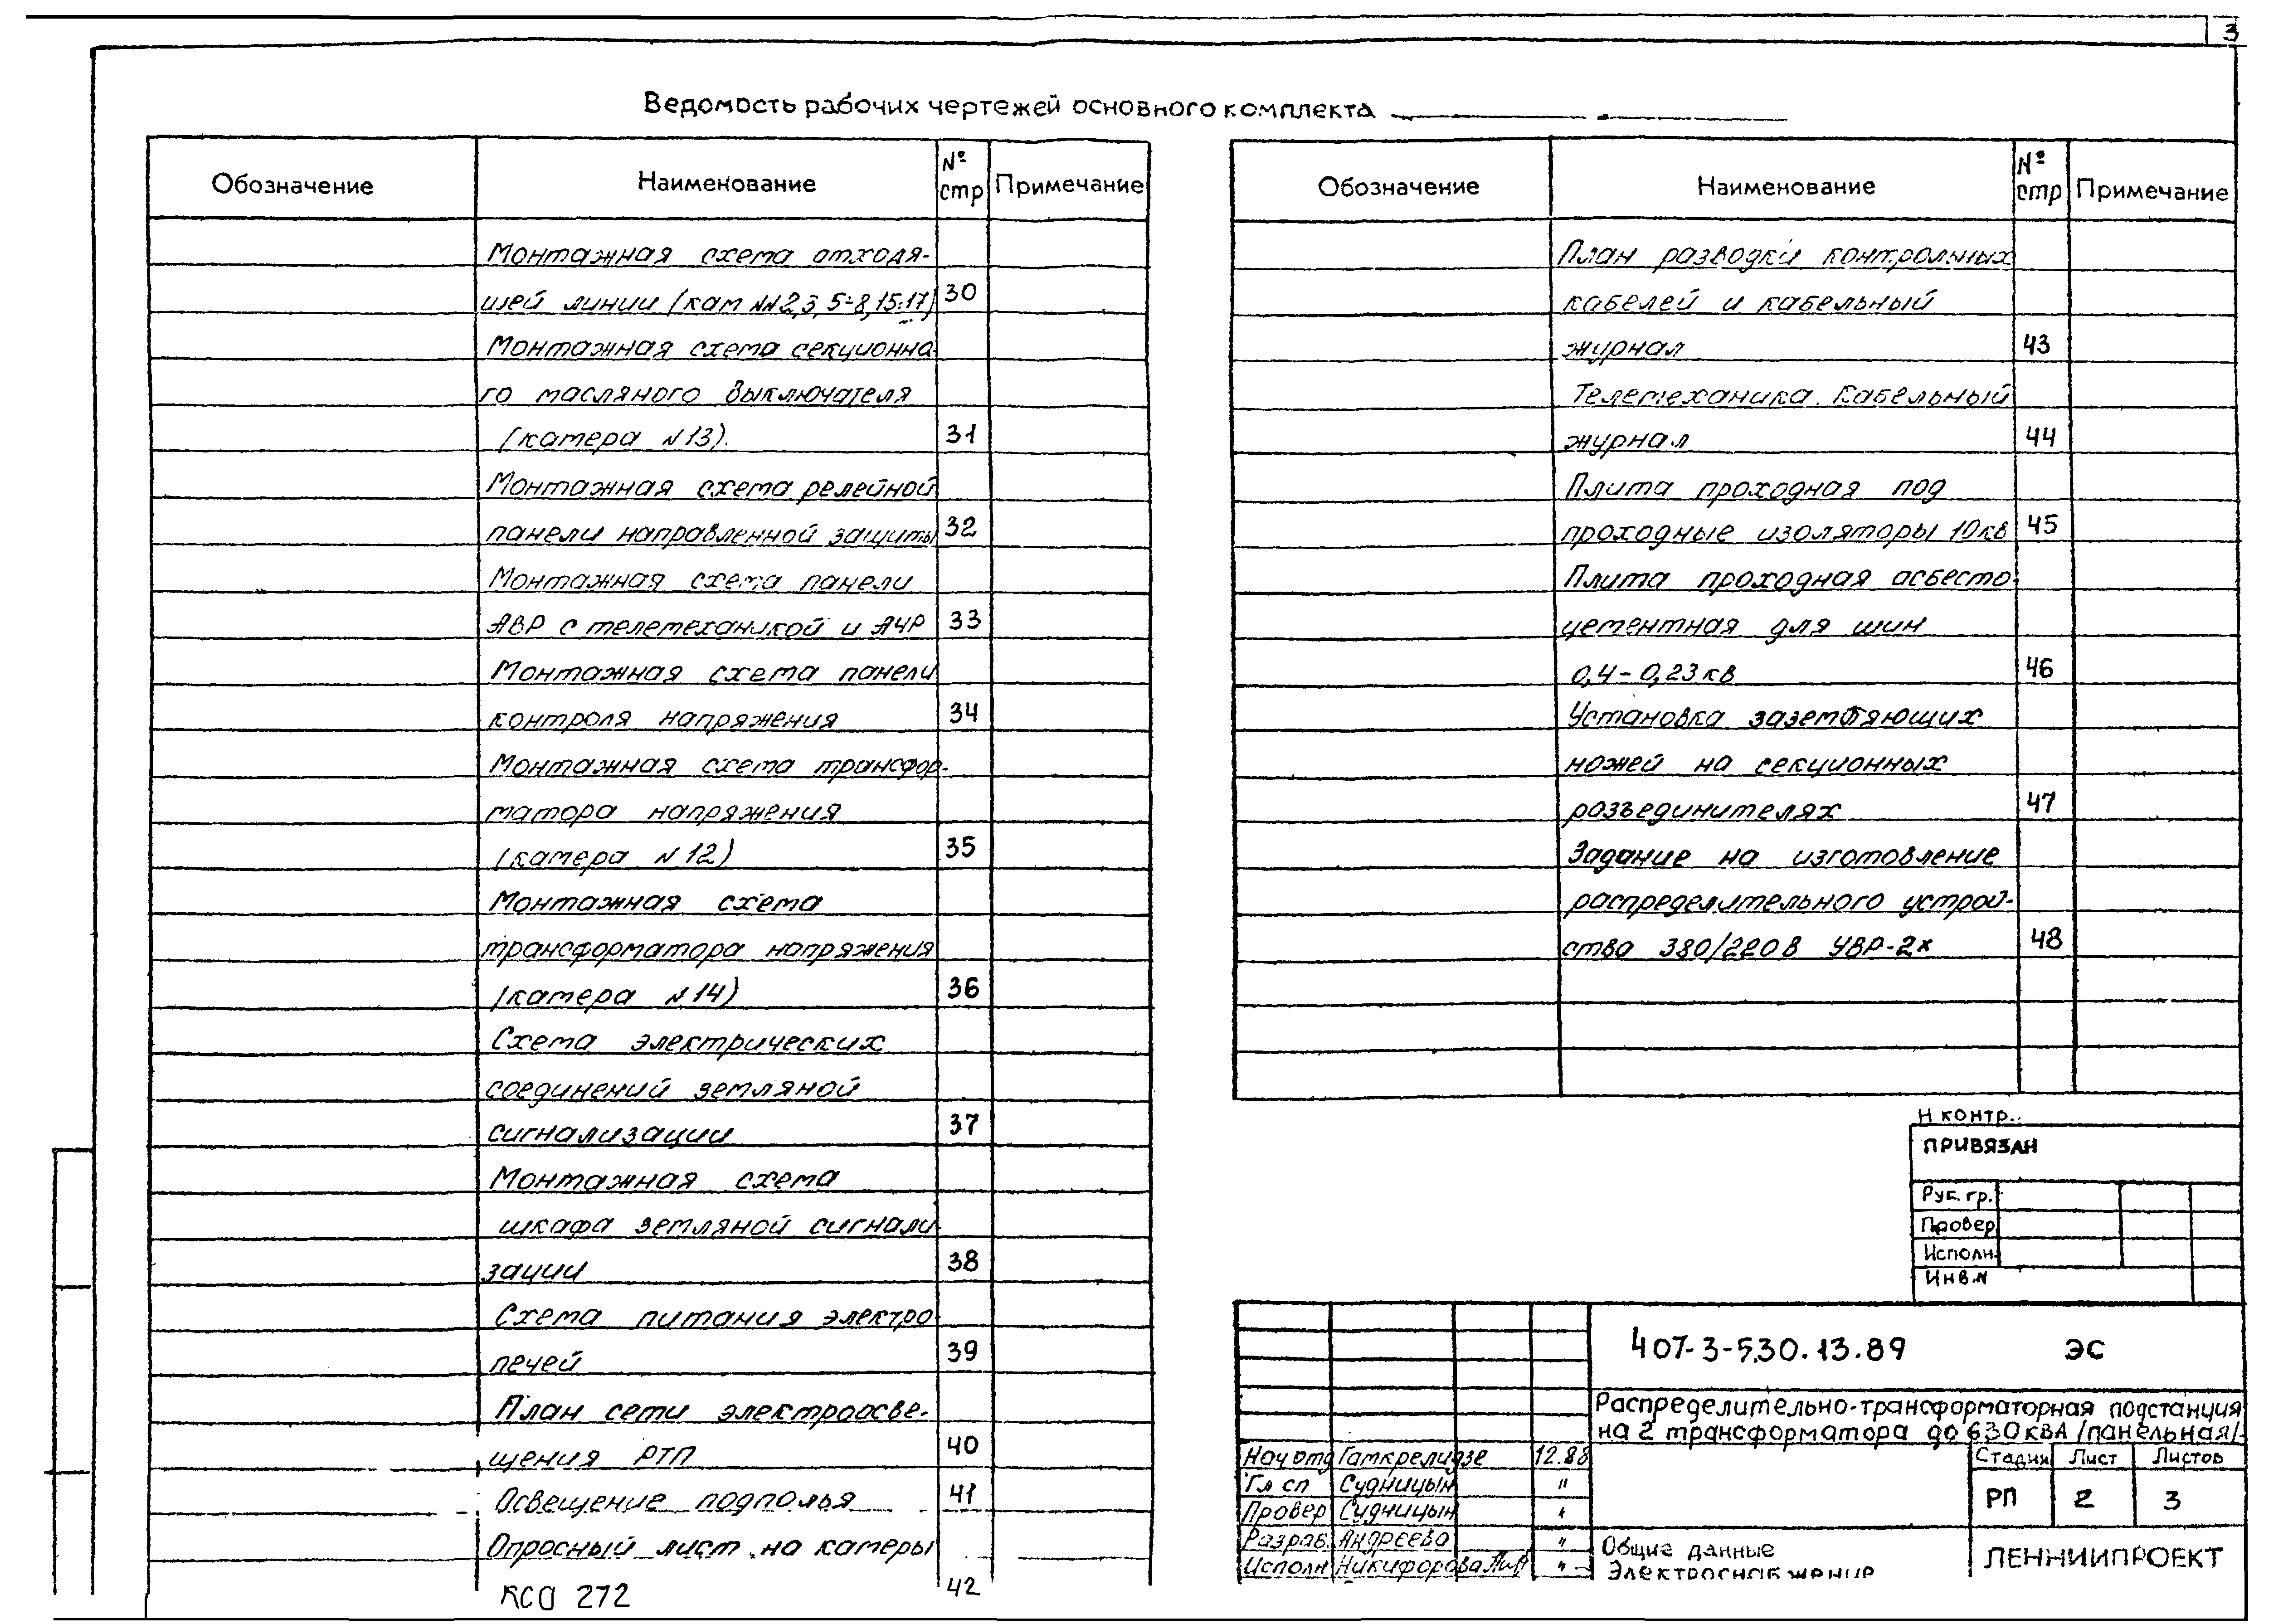 3
Ведомость рабочих чертежей основного комплекта
Обозначение Наименование № стр Примечание
Монтажная схема отходя-
щей линии (кам NN2,3,5÷8,15÷17) 30
Монтажная схема секционно
го масляного выключателя
(камера N13). 31
Монтажная схема релейной
панели направленной защиты 32
Монтажная схема панели
АВР с телемеханикой и АЧР 33
Монтажная схема панели
контроля напряжения 34
Монтажная схема трансфор-
матора напряжения
(камера N12) 35
Монтажная схема
трансформатора напряжения
(камера N14) 36
Схема электрических
соединений земляной
сигнализации 37
Монтажная схема
шкафа земляной сигнали
зации 38
Схема питания электро
печей 39
План сети электроосве-
щения РТП 40
Освещение подполья 41
Опросный лист на камеры
КСО 272 42
Обозначение Наименование № стр Примечание
План разводки контрольных
кабелей и кабельный
журнал 43
Телемеханика. Кабельный
журнал 44
Плита проходная под
проходные изоляторы 10кв 45
Плита проходная асбесто-
цементная для шин
0,4-0,23кв 46
Установка заземляющих
ножей на секционных
разъединителях 47
Задание на изготовление
распределительного устрой-
ства 380/220в УВР-2к 48
Н контр.
ПРИВЯЗАН
Рук. гр.
Провер
Исполн.
Инв.N
407-3-530.13.89 ЭС
Распределительно-трансформаторная подстанция
на 2 трансформатора до 630кВА /панельная/
Нач отд Гамкрелидзе 12.88
Гл сп Судницын "
Провер Судницын "
Разраб. Андреева "
Исполн Никифорова "
Стадия Лист Листов
РП 2 3
Общие данные
Электроснабжение
ЛЕННИИПРОЕКТ